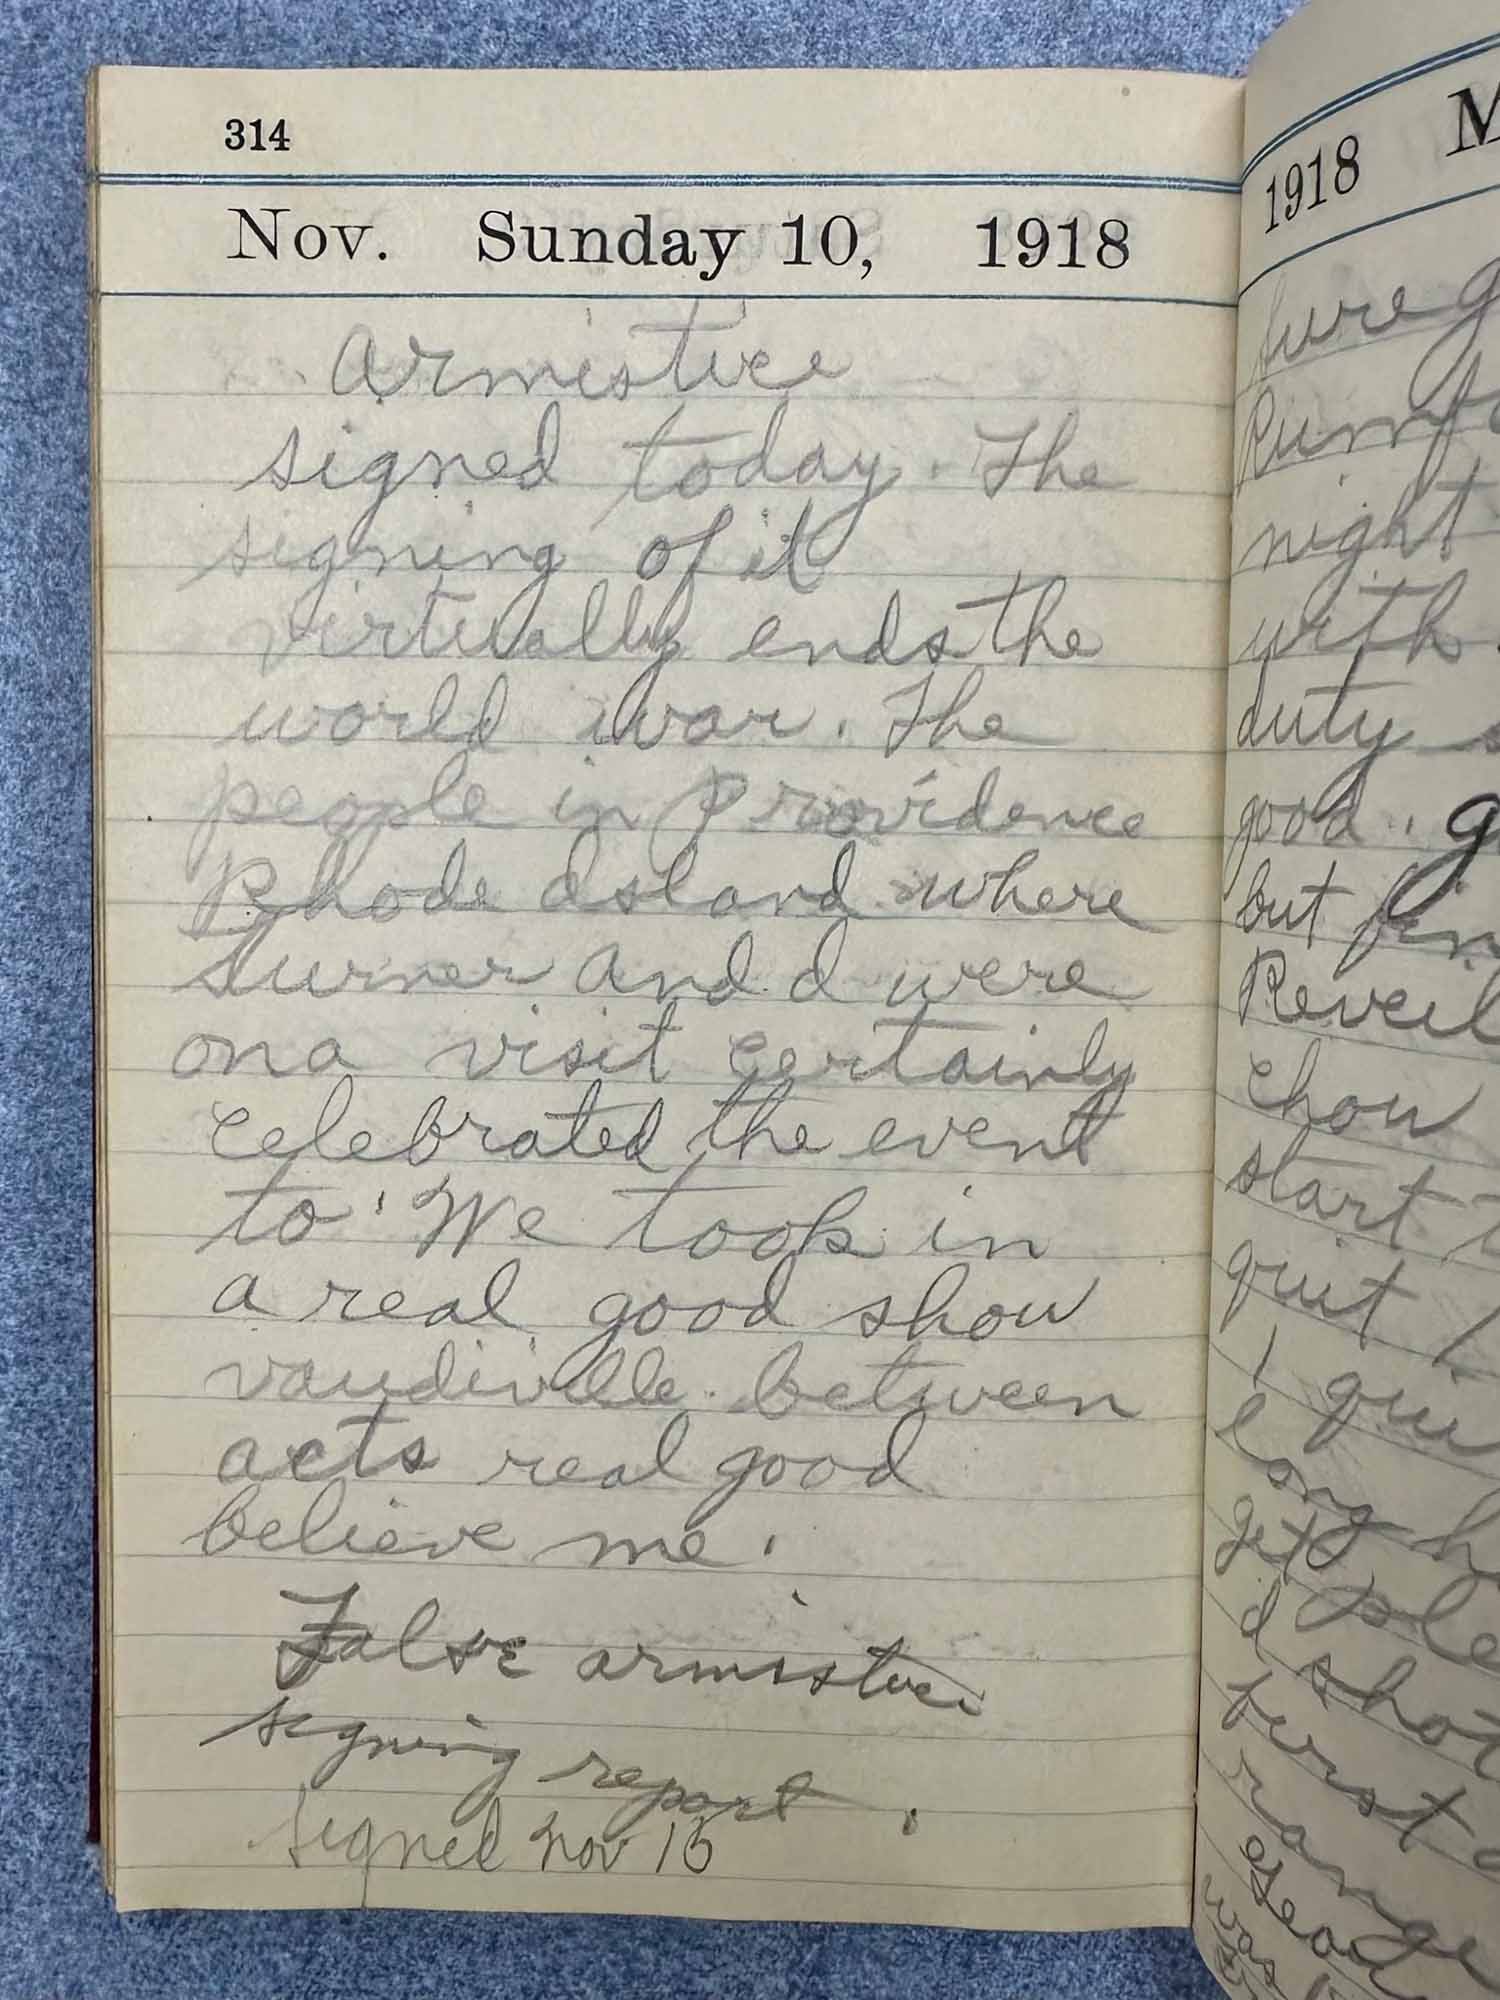 314
Nov. Sunday 10, 1918
Armistice
signed today. The
signing of it
virtually ends the
world war. The
people in Providence
Rhode Island where
Turner and I were
on a visit certainly
celebrated the event
to. We took in
a real good show
vaudiville between
acts real good
believe me.
False armistice
signing report.
signed Nov 15
1918 M
sure g
Rumf
night
with
duty s
good. g
but fin
Reveil
chow
start t
quit
I qu
long h
get sle
I shot
first
range
was